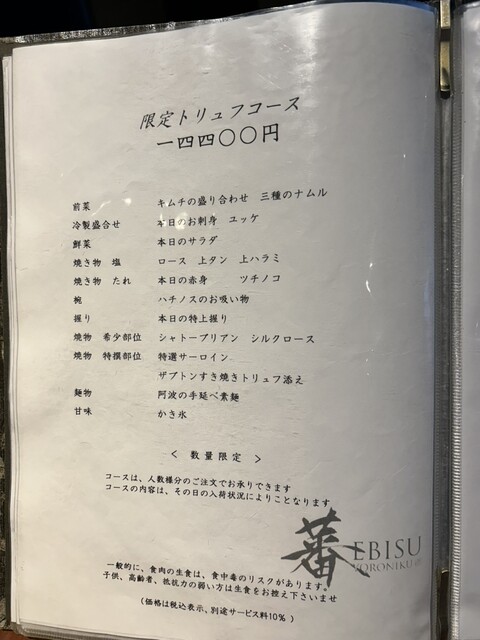 限定トリュフコース
一四四〇〇円
前菜 キムチの盛り合わせ 三種のナムル
冷製盛合せ 本日のお刺身 ユッケ
鮮菜 本日のサラダ
焼き物 塩 ロース 上タン 上ハラミ
焼き物 たれ 本日の赤身 ツチノコ
椀 ハチノスのお吸い物
握り 本日の特上握り
焼物 希少部位 シャトーブリアン シルクロース
焼物 特撰部位 特選サーロイン
ザブトンすき焼きトリュフ添え
麺物 阿波の手延べ素麺
甘味 かき氷
< 数量限定 >
コースは、人数様分のご注文でお承りできます
コースの内容は、その日の入荷状況によりことなります
蕃 EBISU
YORONIKU
一般的に、食肉の生食は、食中毒のリスクがあります。
子供、高齢者、抵抗力の弱い方は生食をお控え下さいませ
(価格は税込表示、別途サービス料10%)